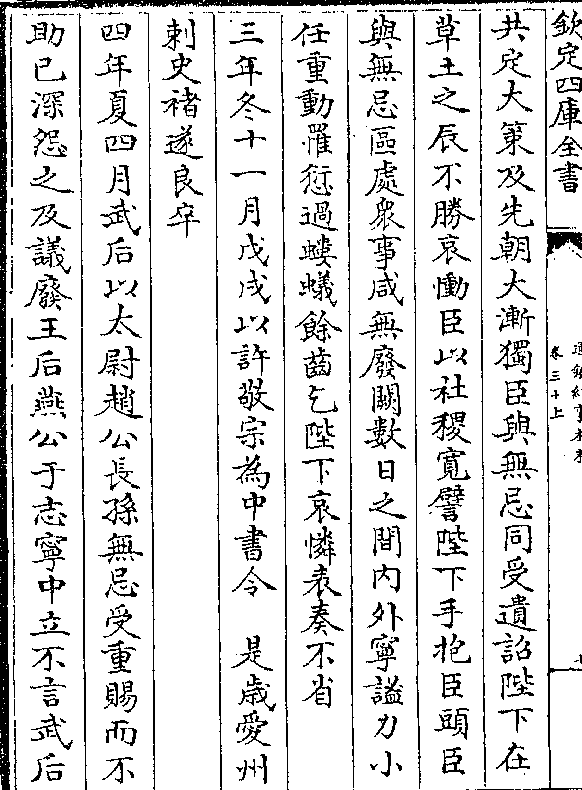 欽定四庫全書
卷三十上
共定大策及先朝大漸獨臣與無忌同受遺詔陛下在
草土之辰不勝哀慟臣以社稷寬譬陛下手抱臣頸臣
與無忌區處衆事咸無廢闕數日之間内外寧謐力小
任重動罹愆過螻蟻餘齒乞陛下哀憐表奏不省
三年冬十一月戊戌以許敬宗為中書令　是歲愛州
刺史褚遂良卒
四年夏四月武后以太尉趙公長孫無忌受重賜而不
助已深怨之及議廢王后燕公于志寧中立不言武后